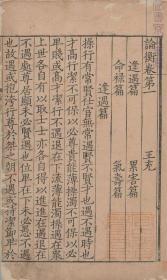 論衡卷第一 王充
逢遇篇 累害篇
命祿篇 氣壽篇
逢遇篇
操行有常賢仕宦無常遇賢不賢才也遇不遇時也
才高行潔不可保以必尊貴能薄操濁不可保以必
卑賤或高才潔行不遇退在下流薄能濁操遇在衆
上世各自有以取士士亦各自得以進進在遇退在
不遇處尊居顯未必賢遇也位卑在下未必愚不遇
也故遇或抱洿行尊於桀之朝不遇或持潔節卑於